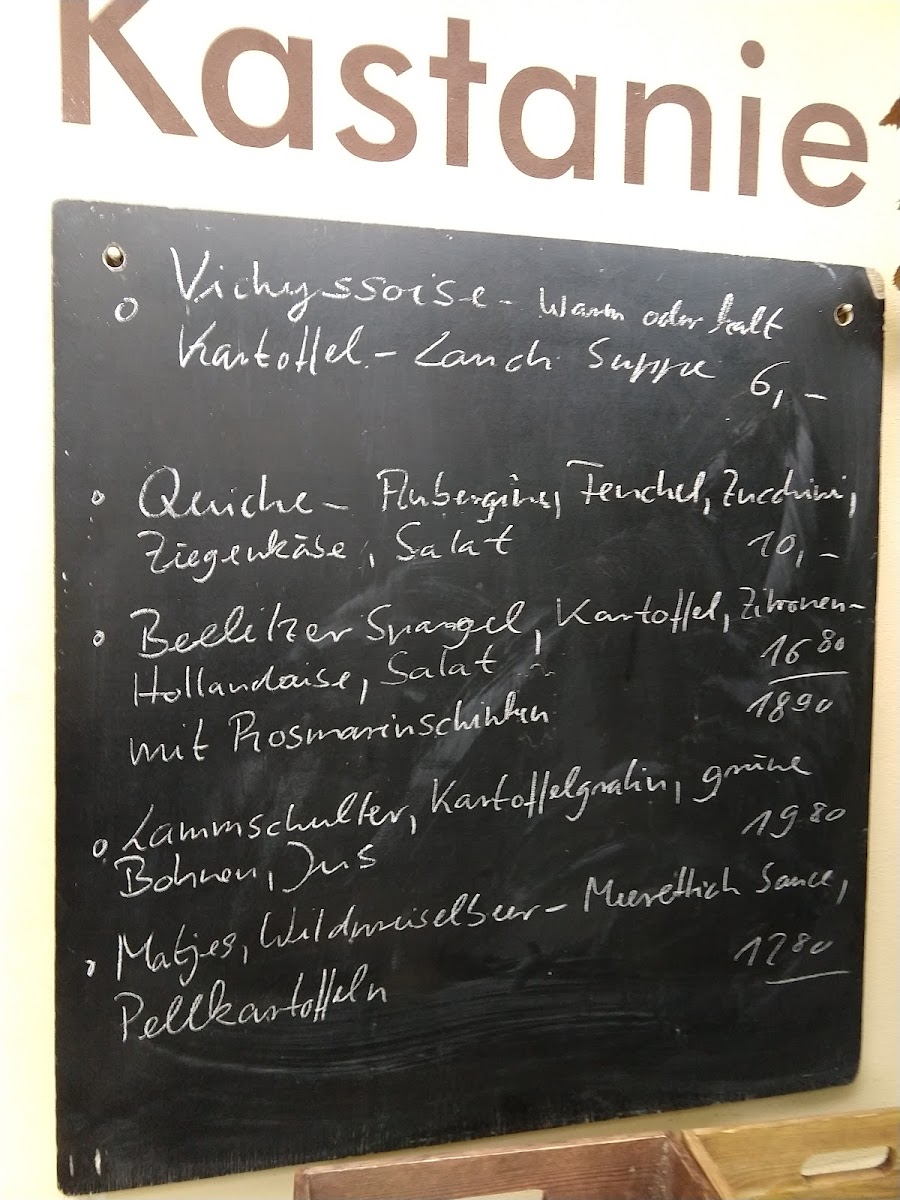 Kastanie
Vichyssoise - warm oder kalt
Kartoffel - Lauch Suppe 6,-
Quiche - Aubergine, Fenchel, Zucchini,
Ziegenkäse, Salat 10,-
Beelitzer Spargel, Kartoffel, Zitronen-
Hollandaise, Salat 16 80
mit Rosmarinschinken 18 90
Lammschulter, Kartoffelgratin, grüne
Bohnen, Jus 19 80
Matjes, Wildpreiselbeer - Meerettich Sauce,
Pellkartoffeln 12 80